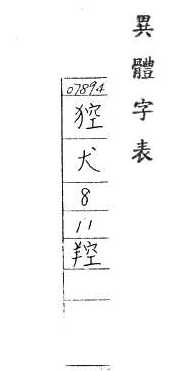 異體字表
07894
猐
犬
8
11
羫